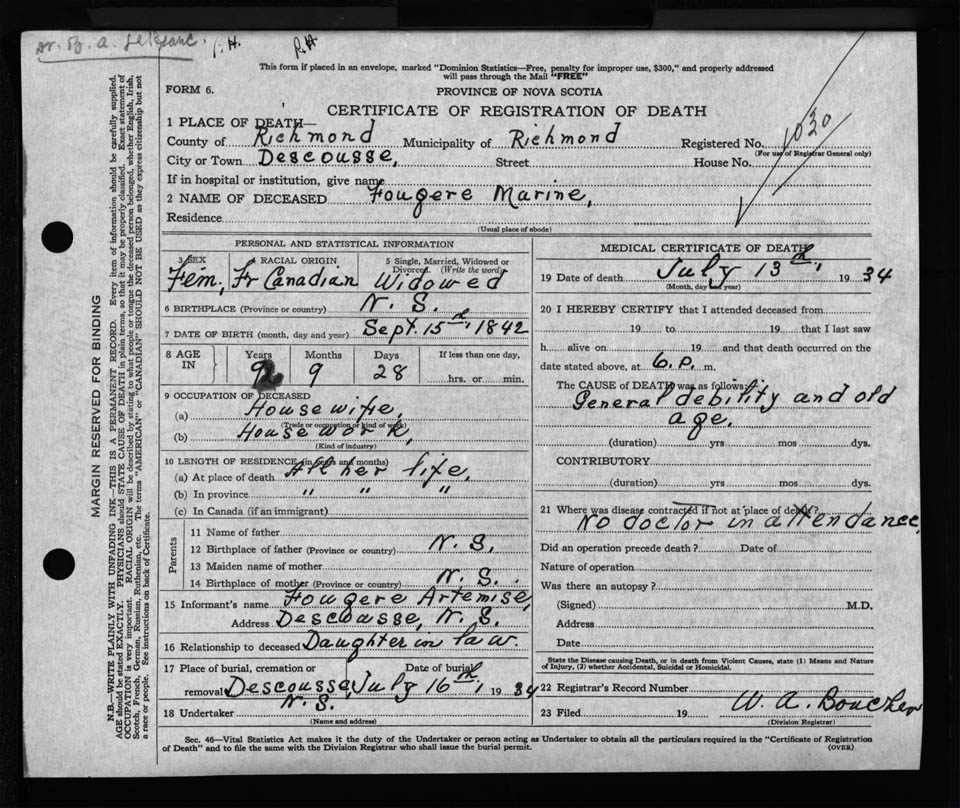 Dr. B. A. LeBlanc. P.H. P.H
This form if placed in an envelope, marked "Dominion Statistics—Free, penalty for improper use, $300," and properly addressed
will pass through the Mail "FREE"
FORM 6.
PROVINCE OF NOVA SCOTIA
CERTIFICATE OF REGISTRATION OF DEATH
1 PLACE OF DEATH—
County of Richmond Municipality of Richmond Registered No. 1030
(For use of Registrar General only)
City or Town Descousse, Street House No.
If in hospital or institution, give name
2 NAME OF DECEASED Fougere Marine,
Residence
(Usual place of abode)
PERSONAL AND STATISTICAL INFORMATION
3 SEX 4 RACIAL ORIGIN 5 Single, Married, Widowed or
Divorced. (Write the word)
Fem, Fr Canadian Widowed
6 BIRTHPLACE (Province or country) N. S.
7 DATE OF BIRTH (month, day and year) Sept. 15th, 1842
8 AGE IN Years Months Days If less than one day,
92 9 28 hrs. or min.
9 OCCUPATION OF DECEASED
(a) Housewife,
(Trade or occupation or kind of work)
(b) House work,
(Kind of industry)
10 LENGTH OF RESIDENCE (in years and months)
(a) At place of death All her life,
(b) In province " " "
(c) In Canada (if an immigrant)
Parents
11 Name of father
12 Birthplace of father (Province or country) N. S.
13 Maiden name of mother
14 Birthplace of mother (Province or country) N. S.
15 Informant's name Fougere Artemise,
Address Descousse, N. S.
16 Relationship to deceased Daughter in law.
17 Place of burial, cremation or Date of burial
removal Descousse, July 16th, 1934
N. S.
18 Undertaker
(Name and address)
MEDICAL CERTIFICATE OF DEATH
19 Date of death July 13th, 1934
(Month, day and year)
20 I HEREBY CERTIFY that I attended deceased from
19 to 19 that I last saw
h alive on 19 and that death occurred on the
date stated above, at 6. p. m.
The CAUSE of DEATH was as follows:
General debility and old
age.
(duration) yrs mos dys.
CONTRIBUTORY
(duration) yrs mos dys.
21 Where was disease contracted if not at place of death?
No doctor in attendance,
Did an operation precede death? Date of
Nature of operation
Was there an autopsy?
(Signed) M.D.
Address
Date
State the Disease causing Death, or in death from Violent Causes, state (1) Means and Nature
of Injury, (2) whether Accidental, Suicidal or Homicidal.
22 Registrar's Record Number
W. A. Boucher
23 Filed 19
(Division Registrar)
Sec. 46—Vital Statistics Act makes it the duty of the Undertaker or person acting as Undertaker to obtain all the particulars required in the "Certificate of Registration
of Death" and to file the same with the Division Registrar who shall issue the burial permit.
(OVER)
MARGIN RESERVED FOR BINDING
N.B.—WRITE PLAINLY WITH UNFADING INK—THIS IS A PERMANENT RECORD. Every item of information should be carefully supplied.
AGE should be stated EXACTLY. PHYSICIANS should STATE CAUSE OF DEATH in plain terms, so that it may be properly classified. Exact statement of
OCCUPATION is very important. RACIAL ORIGIN will be described by stating to what people or tongue the deceased person belonged, whether English, Irish,
Scotch, French, German, Russian, Ruthenian, etc. The terms "AMERICAN" or "CANADIAN" SHOULD NOT BE USED as they express citizenship but not
a race or people. See instructions on back of Certificate.